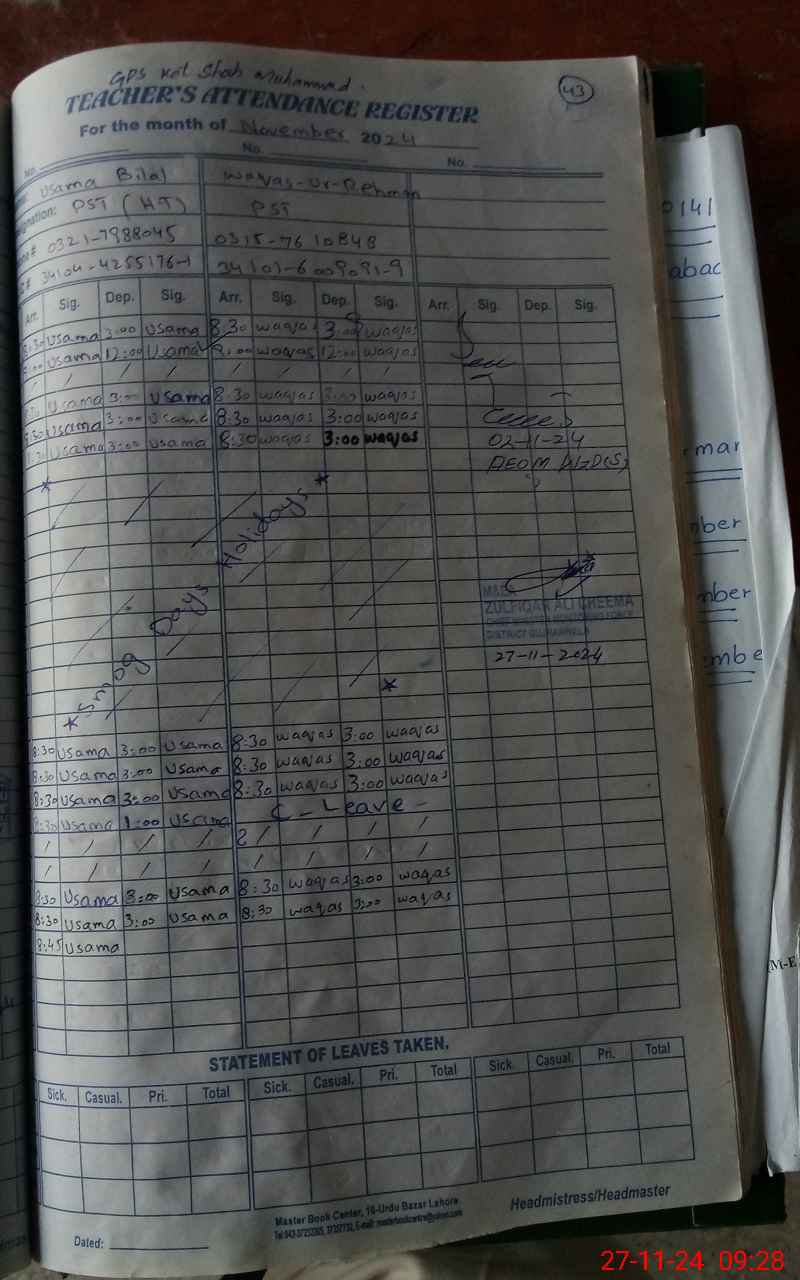 GPS Kot Shah Muhammad.
43
TEACHER'S ATTENDANCE REGISTER
For the month of November 2024
No. No. No.
Usama Bilal Waqas-Ur-Rehman
PST (HT) PST
0321-7988045 0315-7610848
34104-4255176-1
Arr. Sig. Dep. Sig. Arr. Sig. Dep. Sig. Arr. Sig. Dep. Sig.
8:30 Usama 3:00 Usama 8:30 waqas 3:00 waqas
Usama 12:00 Usama 8:00 waqas 12:00 waqas
/ / / / / / / /
Usama 3:00 Usama 8:30 waqas 3:00 waqas
8:30 Usama 3:00 Usama 8:30 waqas 3:00 waqas
8:30 Usama 3:00 Usama 8:30 waqas 3:00 waqas
02-11-24
* Smog Days Holidays *
*
ZULFIQAR ALI CHEEMA
CHIEF MINISTER MONITORING FORCE
DISTRICT GUJRANWALA
27-11-2024
8:30 Usama 3:00 Usama 8:30 waqas 3:00 waqas
8:30 Usama 3:00 Usama 8:30 waqas 3:00 waqas
8:30 Usama 3:00 Usama 8:30 waqas 3:00 waqas
8:30 Usama 1:00 Usama C - Leave -
/ / / / 2/ / / /
/ / / / / / / /
8:30 Usama 3:00 Usama 8:30 waqas 3:00 waqas
8:30 Usama 3:00 Usama 8:30 waqas 3:00 waqas
8:45 Usama
STATEMENT OF LEAVES TAKEN.
Sick. Casual. Pri. Total Sick. Casual. Pri. Total Sick. Casual. Pri. Total
Master Book Center, 16-Urdu Bazar Lahore
Headmistress/Headmaster
Dated:
0141
abac
mar
ber
mber
mbe
(M-E
27-11-24 09:28